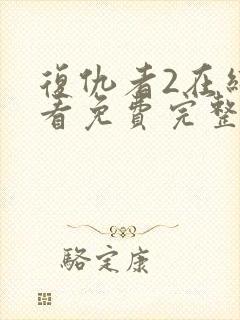 復仇者2在
看免費完整
駱定康